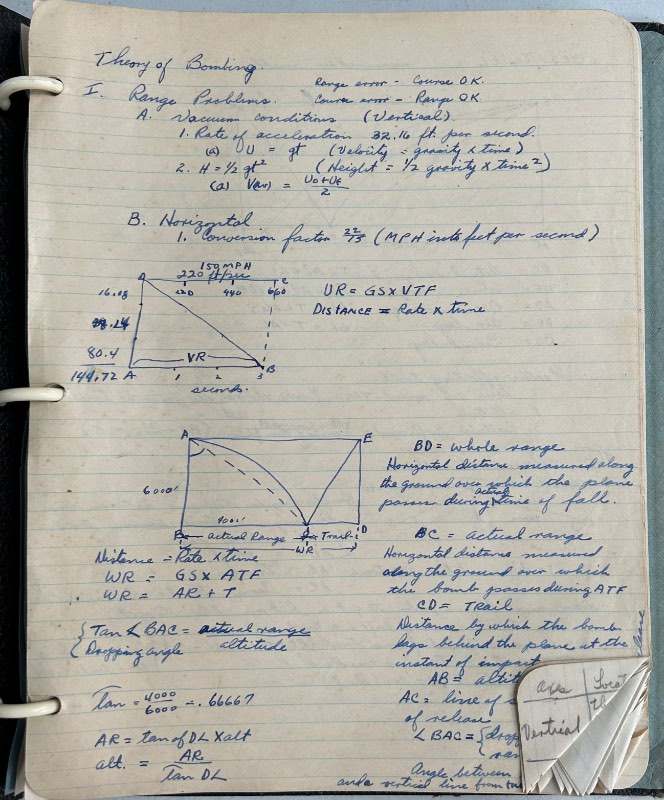 Theory of Bombing
Range error - Course OK.
I. Range Problems. Course error - Range OK
A. Vacuum conditions (Vertical)
1. Rate of acceleration 32.16 ft. per second.
(a) V = gt (Velocity = gravity x time)
2. H = 1/2 gt² (Height = 1/2 gravity x time²)
(a) V(av) = Vo+Vf / 2
B. Horizontal
1. Conversion factor 22/15 (MPH into feet per second)
150 MPH
A 220 ft/sec C
220 440 660
16.08
80.4
144.72
VR
A 1 2 3 B
seconds.
VR = GS x VTF
DISTANCE = Rate x time
A E
6000'
4000'
B Actual Range Trail D
WR
Distance = Rate x time
WR = GS x ATF
WR = AR + T
{ Tan ∠ BAC = actual range
{ Dropping angle altitude
Tan = 4000/6000 = .66667
AR = tan of DL x alt
alt. = AR / Tan DL
BD = whole range
Horizontal distance measured along
the ground over which the plane
passes during actual time of fall.
BC = actual range
Horizontal distance measured
along the ground over which
the bomb passes during ATF
CD = TRAIL
Distance by which the bomb
lags behind the plane at the
instant of impact
AB = altit
AC = line of s
of release
∠ BAC = { drop
ran
Angle between
and a vertical line from
axes
Vertical